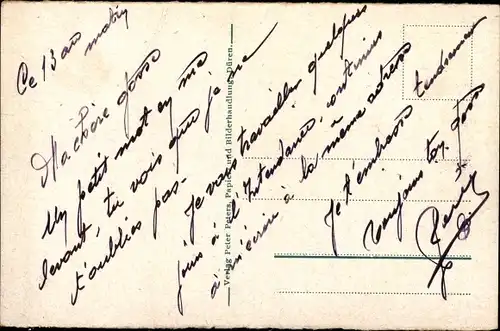 Ce 13 août matin
Ma chère gosse
Un petit mot en me
levant, tu vois que je ne
t'oublies pas.
Je vais travailler quelques
jours à l'Intendance continue
à m'écrire à la même adresse
Je t'embrasse tendrement
toujours ton gosse
René
Verlag Peter Peters, Papier- und Bilderhandlung, Düren.